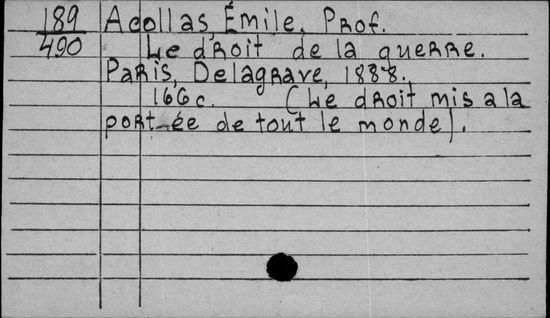 189 Acollas, Émile, Prof.
490 Le droit de la guerre.
Paris, Delagrave, 1888.
166 c. (Le droit mis a la
port-ée de tout le monde).